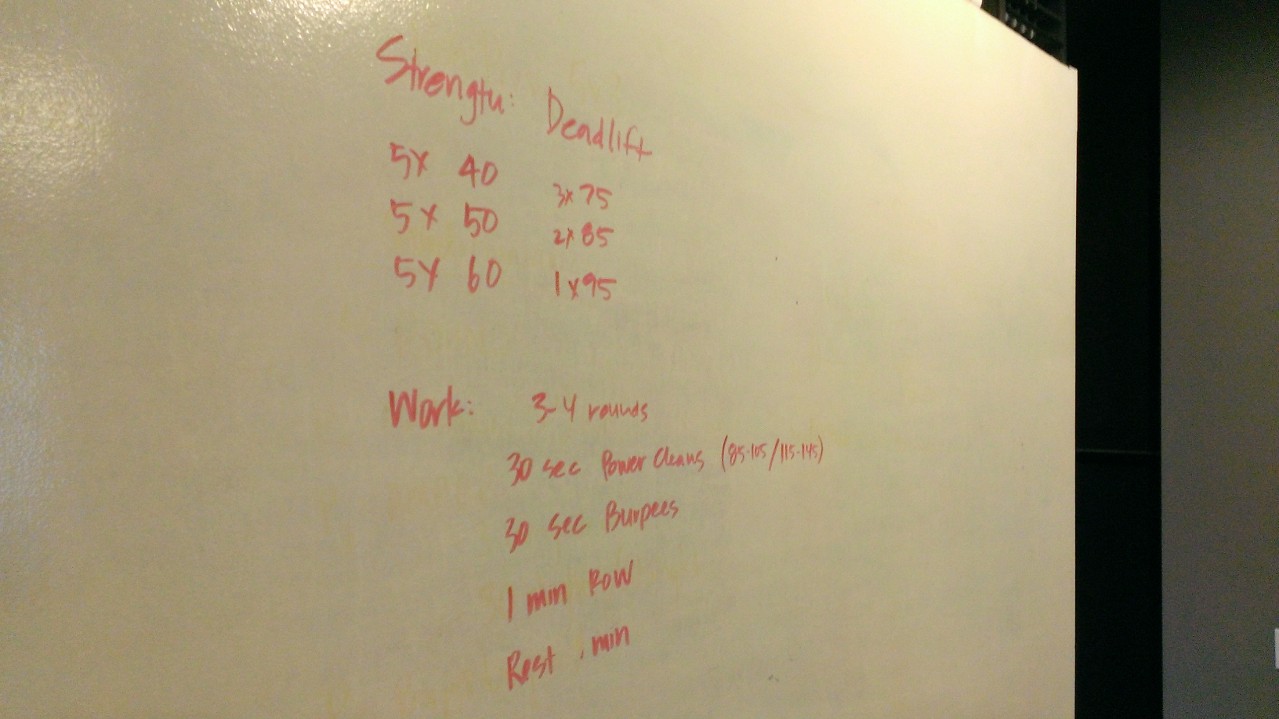 Strength: Deadlift
5x 40
5x 50
5x 60
3x75
2x85
1x95
Work: 3-4 rounds
30 sec Power Cleans (85-105/115-145)
30 sec Burpees
1 min Row
Rest min